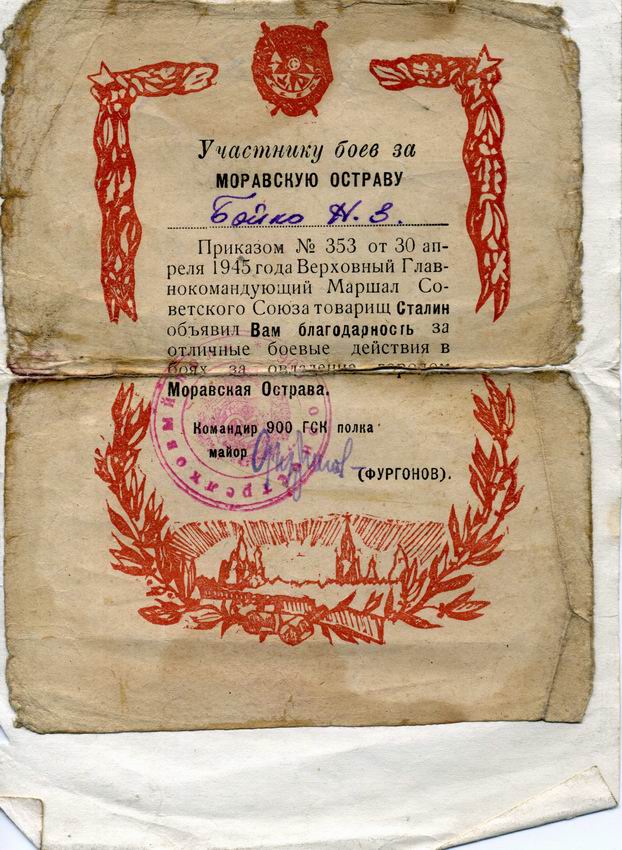 Участнику боев за
МОРАВСКУЮ ОСТРАВУ
Бойко Н. З.
Приказом № 353 от 30 ап-
реля 1945 года Верховный Глав-
нокомандующий Маршал Со-
ветского Союза товарищ Сталин
объявил Вам благодарность за
отличные боевые действия в
боях за овладение городом
Моравская Острава.
Командир 900 ГСК полка
майор
(ФУРГОНОВ).